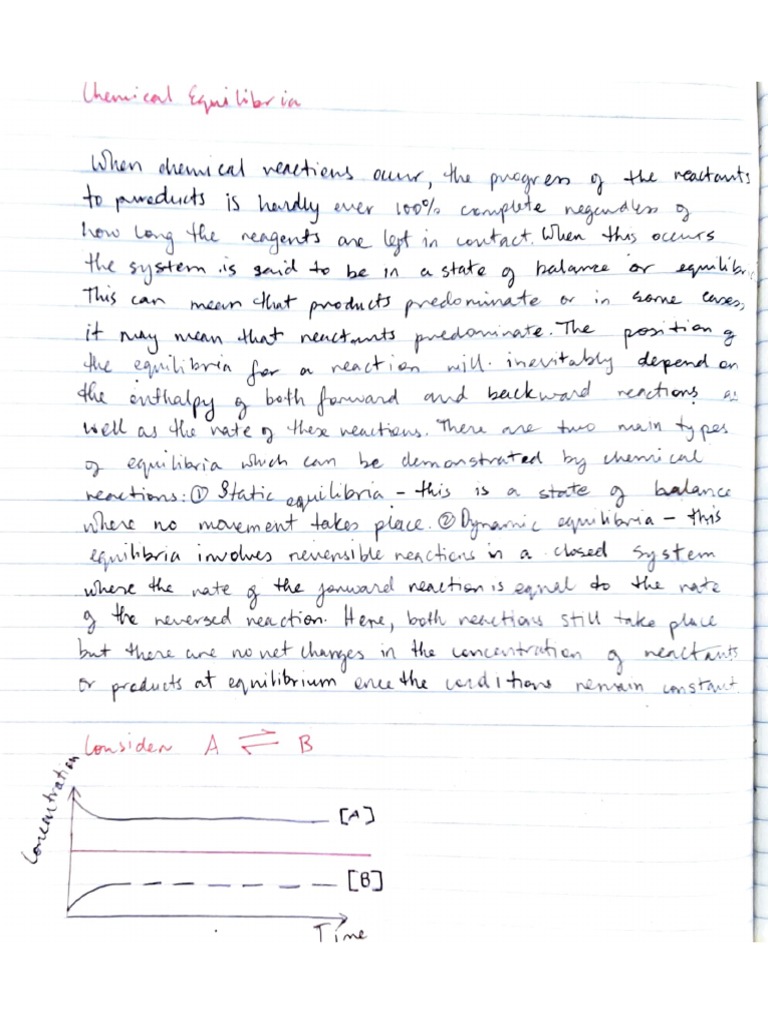 Chemical Equilibria
When chemical reactions occur, the progress of the reactants
to products is hardly ever 100% complete regardless of
how long the reagents are left in contact. When this occurs
the system is said to be in a state of balance or equilibri
This can mean that products predominate or in some cases,
it may mean that reactants predominate. The position of
the equilibria for a reaction will inevitably depend on
the enthalpy of both forward and backward reactions as
well as the rate of these reactions. There are two main types
of equilibria which can be demonstrated by chemical
reactions: ① Static equilibria - this is a state of balance
where no movement takes place. ② Dynamic equilibria - this
equilibria involves reversible reactions in a closed system
where the rate of the forward reaction is equal to the rate
of the reversed reaction. Here, both reactions still take place
but there are no net changes in the concentration of reactants
or products at equilibrium once the conditions remain constant.
Consider A ⇌ B
Concentration
[A]
[B]
Time